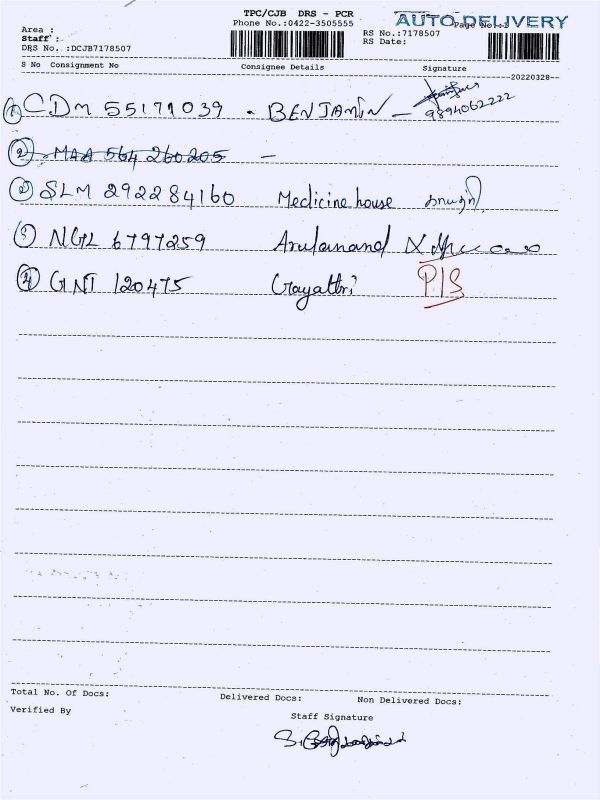 TPC/CJB DRS - PCR
AUTO DELIVERY
Area :
Phone No.:0422-3505555
Page No.:1
Staff :-
RS No.:7178507
DRS No. :DCJB7178507
RS Date:
S No Consignment No Consignee Details Signature
20220328
① CDM 55171039 - BENJAMIN - 9894062222
② MAA 564 260205 -
② SLM 292284160 Medicine house காயத்ரி
③ NGL 6797259 Arulanand
④ GNT 120475 Gayathri P/S
Total No. Of Docs: Delivered Docs: Non Delivered Docs:
Verified By
Staff Signature